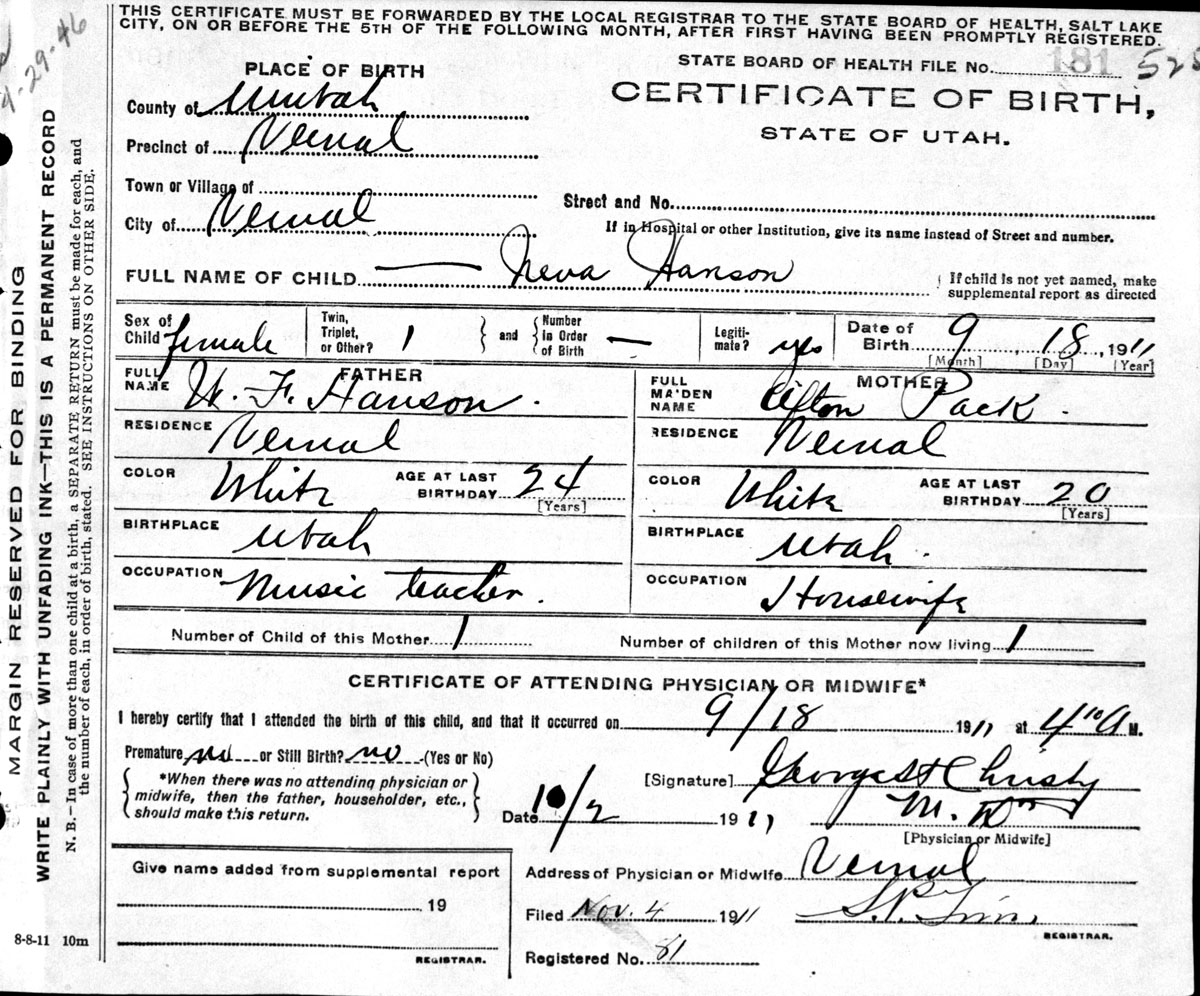 THIS CERTIFICATE MUST BE FORWARDED BY THE LOCAL REGISTRAR TO THE STATE BOARD OF HEALTH, SALT LAKE
CITY, ON OR BEFORE THE 5TH OF THE FOLLOWING MONTH, AFTER FIRST HAVING BEEN PROMPTLY REGISTERED.
-29-46
STATE BOARD OF HEALTH FILE No. 181 525
PLACE OF BIRTH
CERTIFICATE OF BIRTH,
STATE OF UTAH.
County of Uintah
Precinct of Vernal
Town or Village of
Street and No.
City of Vernal
If in Hospital or other Institution, give its name instead of Street and number.
FULL NAME OF CHILD — Neva Hanson
If child is not yet named, make
supplemental report as directed
Sex of Child female
Twin, Triplet, or Other? 1
and
Number in Order of Birth —
Legiti-mate? yes
Date of Birth 9, 18, 1911
[Month] [Day] [Year]
FATHER
FULL NAME W. F. Hanson.
RESIDENCE Vernal
COLOR White AGE AT LAST BIRTHDAY 24
[Years]
BIRTHPLACE Utah
OCCUPATION Music teacher.
MOTHER
FULL MAIDEN NAME Afton Pack.
RESIDENCE Vernal
COLOR White AGE AT LAST BIRTHDAY 20
[Years]
BIRTHPLACE Utah.
OCCUPATION Housewife
Number of Child of this Mother 1
Number of children of this Mother now living 1
CERTIFICATE OF ATTENDING PHYSICIAN OR MIDWIFE*
I hereby certify that I attended the birth of this child, and that it occurred on 9/18 1911 at 4 10 A M.
Premature no or Still Birth? no (Yes or No)
*When there was no attending physician or
midwife, then the father, householder, etc.,
should make this return.
[Signature] George H Christy
M. D.
[Physician or Midwife]
Date 10/2 1911
Give name added from supplemental report
19
REGISTRAR.
Address of Physician or Midwife Vernal
Filed Nov. 4 1911
REGISTRAR.
Registered No. 81
8-8-11 10m
MARGIN RESERVED FOR BINDING
WRITE PLAINLY WITH UNFADING INK—THIS IS A PERMANENT RECORD
N. B.—In case of more than one child at a birth, a SEPARATE RETURN must be made for each, and
the number of each, in order of birth, stated. SEE INSTRUCTIONS ON OTHER SIDE.